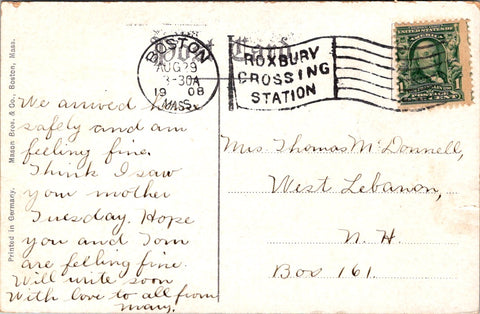 Post Card
BOSTON
AUG 29
3-30A
1908
MASS.
ROXBURY
CROSSING
STATION
Printed in Germany. Mason Bros. & Co., Boston, Mass.
We arrived
safely and am
feeling fine.
Think I saw
your mother
Tuesday. Hope
you and Tom
are feeling fine.
Will write soon
With love to all from
Mary.
Mrs Thomas McDonnell,
West Lebanon,
N. H.
Box 161.